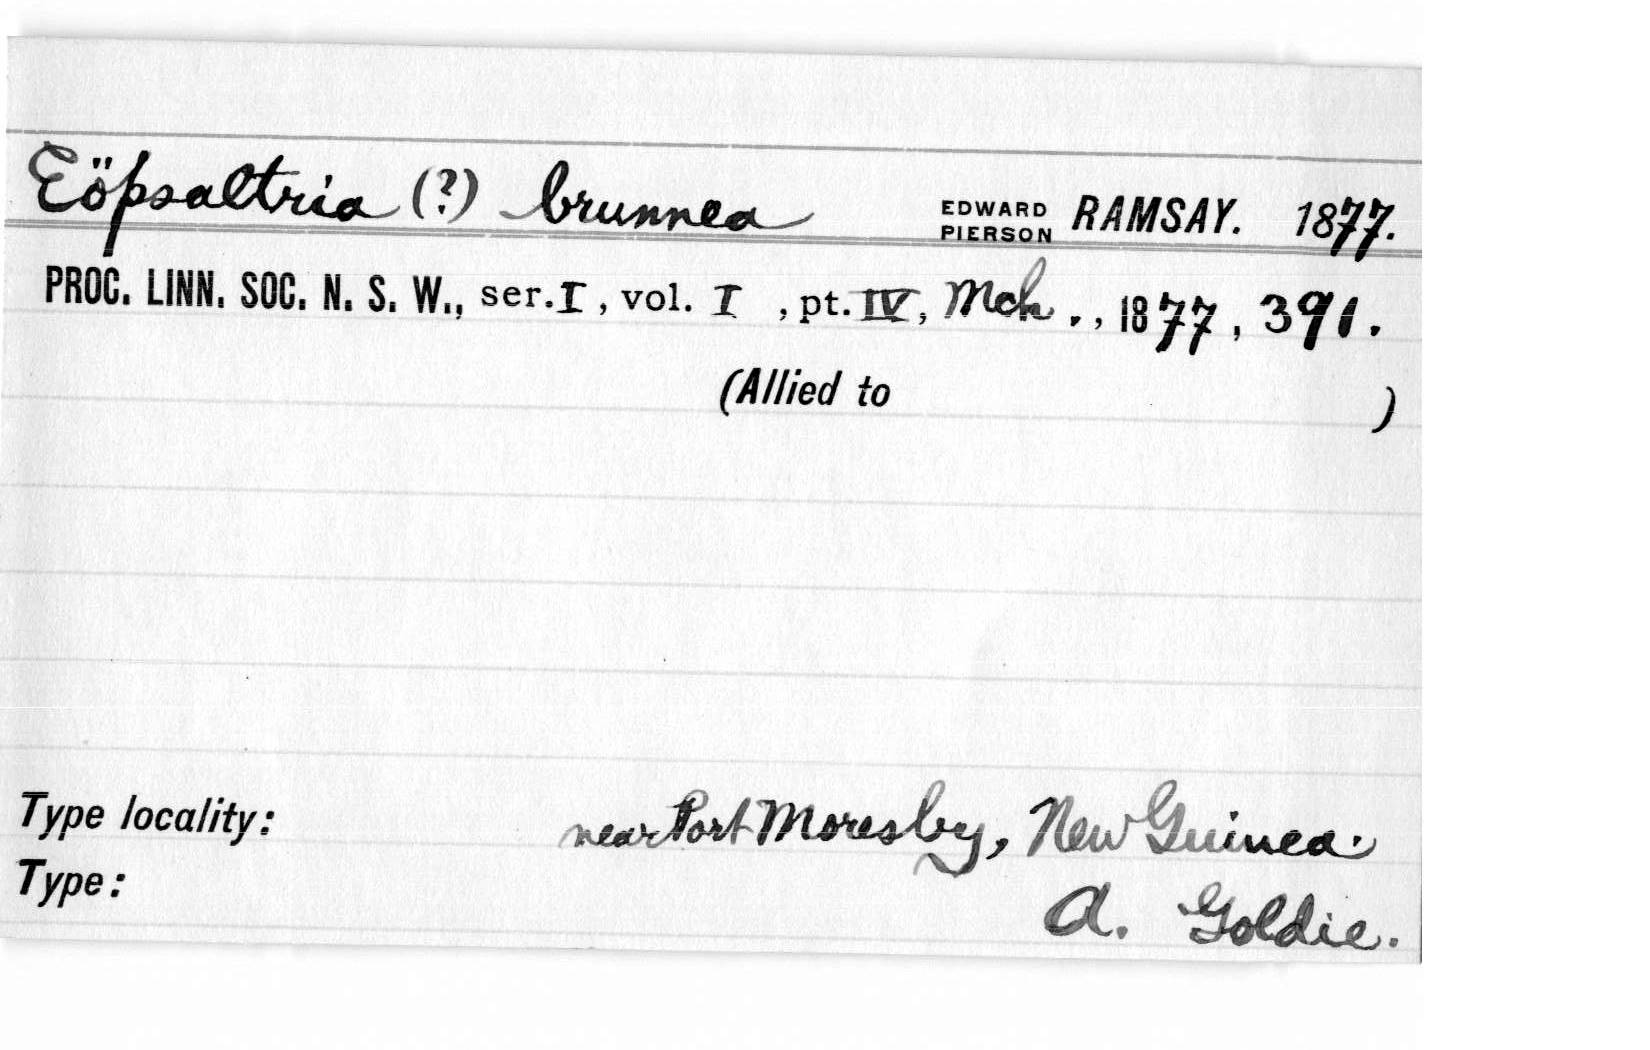 Eöpsaltria (?) brunnea EDWARD PIERSON RAMSAY. 1877.
PROC. LINN. SOC. N. S. W., ser. I, vol. I, pt. IV, Mch., 1877, 391.
(Allied to )
Type locality: near Port Moresby, New Guinea.
Type: A. Goldie.